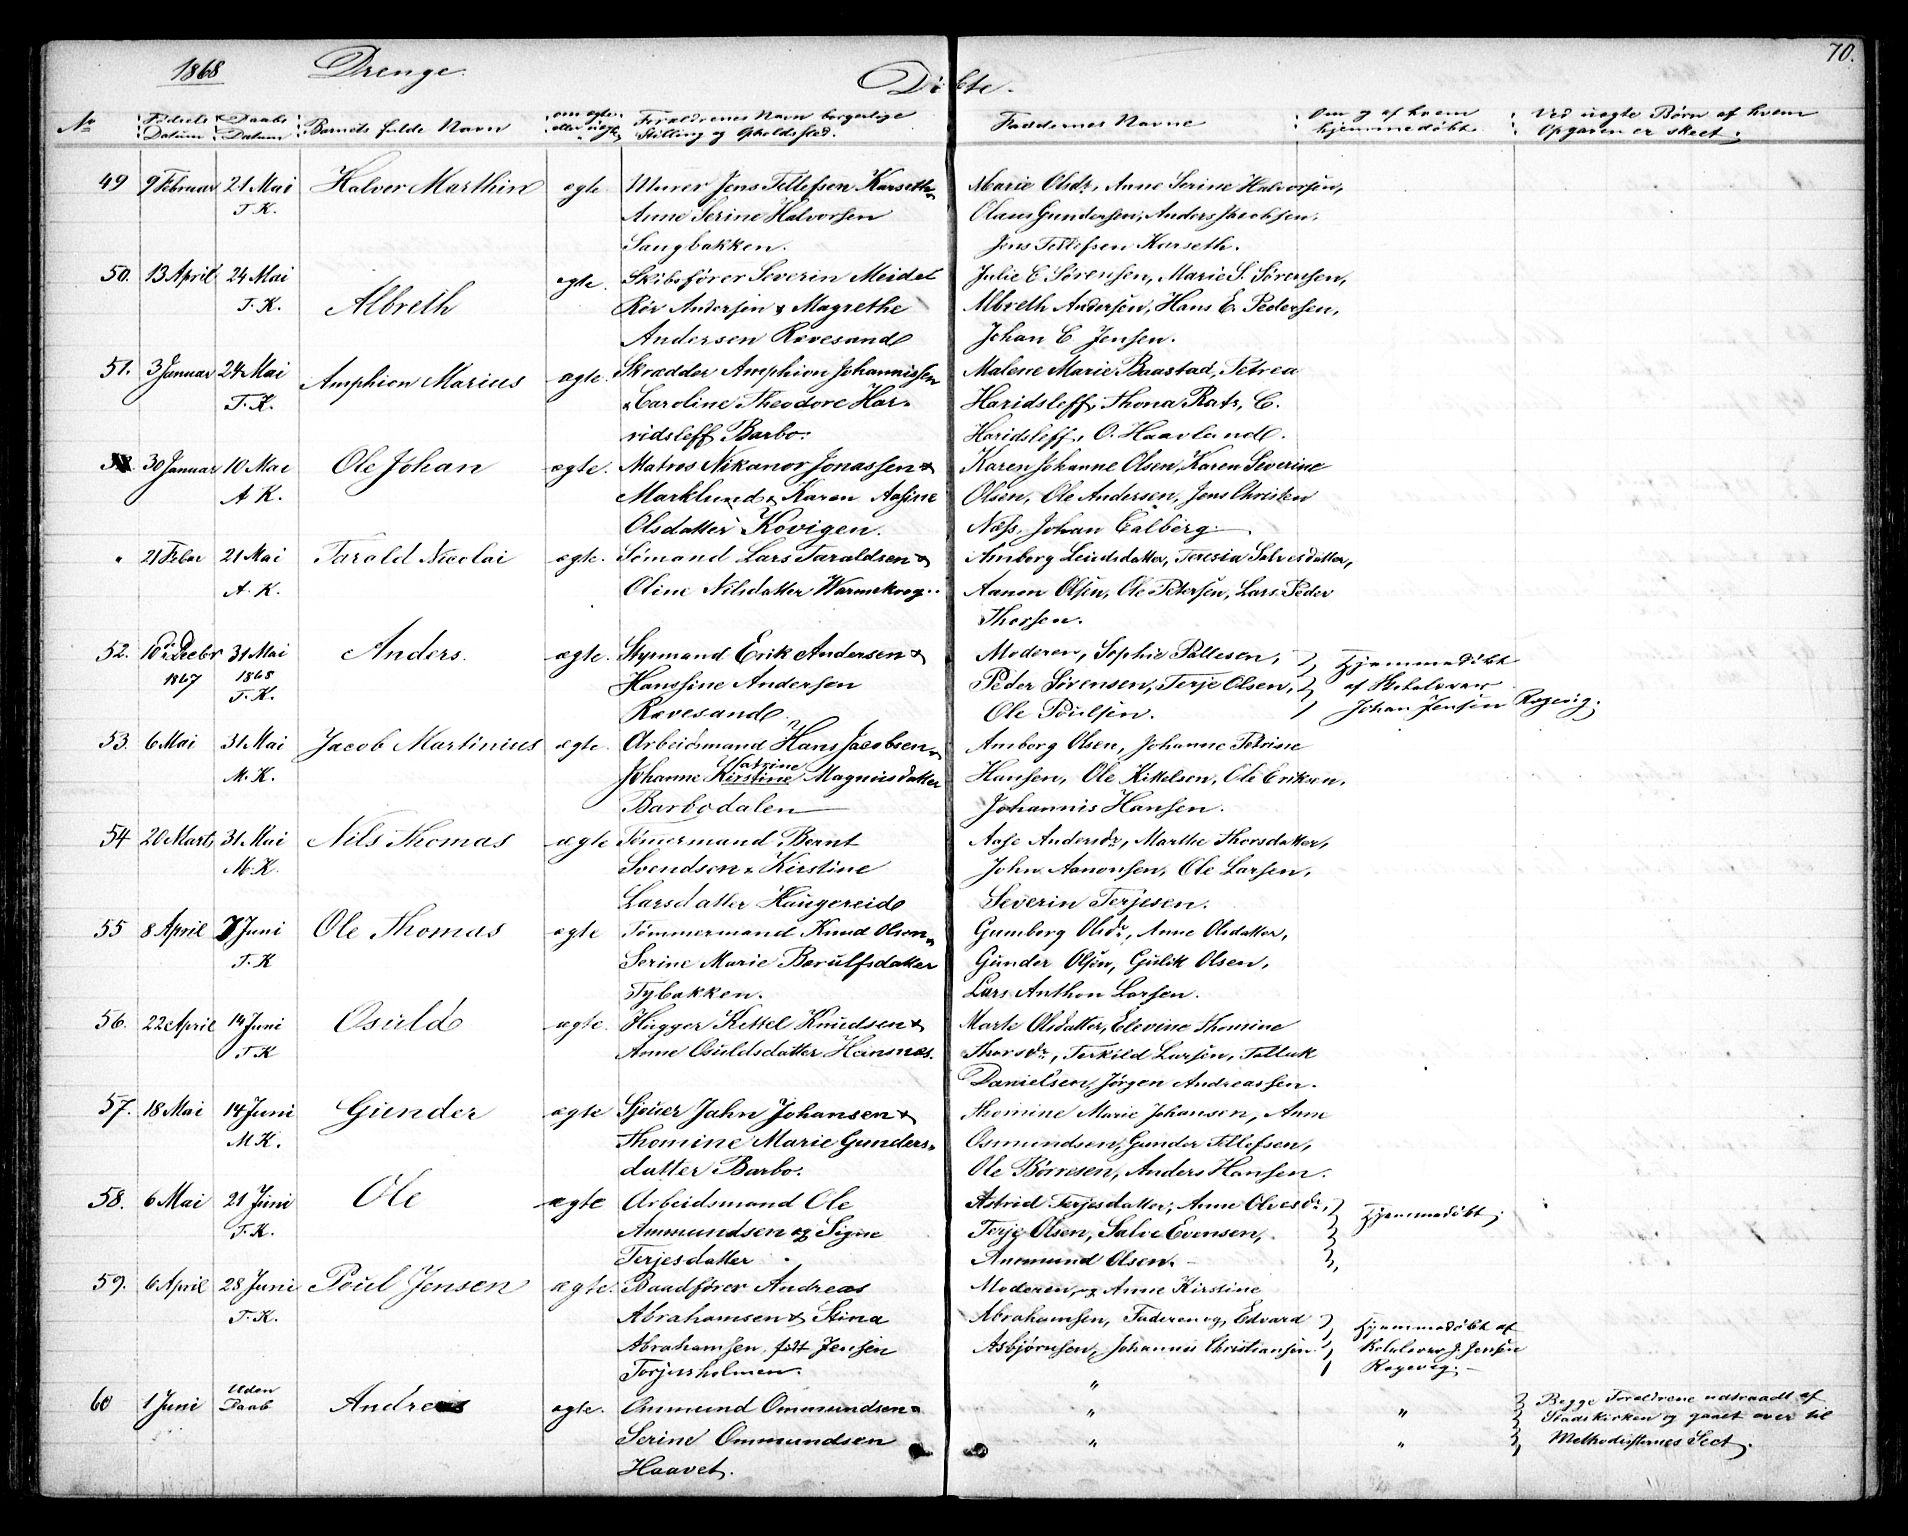 70.
1868 Drenge. Döbte.
No Födsels Datum Daabs Datum Barnets fulde Navn om ægte eller uægte Forældrenes Navn borgerlige Stilling og Opholdssted. Faddernes Navne Om og af hvem hjemmedöbt Ved uægte Börn af hvem Opgaven er skeet.
49 9 Februar 21 Mai Halvor Marthin ægte. Murer Jens Tellefsen Karseth & Marie Olsdr, Anne Serine Halvorsen,
T. K. Anne Serine Halvorsen Olaus Gundersen, Anders Jacobsen,
Sangbakken. Jens Tellefsen Karseth.
50. 13 April 24 Mai ægte. Skibsförer Severin Meidel Julie E Sörensen, Marie S. Sörensen,
T. K. Albreth Rör Andersen & Magrethe Albreth Andersen, Hans E. Pedersen,
Andersen Revesand Johan C Jensen.
51. 3 Januar 24 Mai Amphion Marius ægte. Skrædder Amphion Johannissen Malene Marie Baastad, Petrea
T. K. & Caroline Theodore Har- Haridsleff, Thona Ratr, C.
ridsleff Barbo. Haridsleff, O. Haavland.
30 Januar 10 Mai Ole Johan ægte. Matros Nikanor Jonassen & Karen Johanne Olsen, Karen Severine
A K. Marklund & Karen Aasine Olsen, Ole Andersen, Jens Christen
Olsdatter Kovigen. Næss, Johan Calberg.
" 21 Febar 21 Mai Tarald Nicolai ægte. Sömand Lars Taraldsen & Amborg Leiedsdatter, Teresia Salvesdatter,
A. K. Oline Nilsdatter Warmekrog. Aanon Olsen, Ole Petersen, Lars Peder
Thorsen.
52. 10 Decbr 31 Mai Anders. ægte. Styrmand Erik Andersen & Moderen, Sophie Pallesen, Hjemmedöbt
1867 1868 Hanssine Andersen Peder Sörensen, Terje Olsen, af Skolelærer
T. K. Revesand. Ole Poulsen. Johan Jensen Rogevig.
53. 6 Mai 31 Mai Jacob Martinius ægte. Arbeidsmand Hans Jacobsen & Amborg Olsen, Johanne Petrine
M. K. Johanne Kirstine Katrine Magnusdatter Hansen, Ole Kittelsen, Ole Eriksen,
Barbodalen Johannis Hansen.
54 20 Marts 31 Mai Nils Thomas ægte Tömermand Bernt Aase Andersdr, Marthe Thorsdatter,
M. K. Svendsen & Kirstine John Aanonsen, Ole Larsen,
Larsdatter Haugereid Severin Terjesen.
55 8 April 7 Juni Ole Thomas ægte Tömmermand Knud Olsen & Gumborg Olsdr, Anne Olsdatter,
T. K Serine Marie Berulfsdatter Gunder Olsen, Gulik Olsen,
Tybakken. Lars Anthon Larsen.
56. 22 April 14 Juni Osuld ægte. Hugger Kittel Knudsen & Marte Olsdatter, Elevine Thomine
T K Anne Osuldsdatter Heisnes. Thorsdr, Terkild Larsen, Tallak
Danielsen, Jörgen Andreassen.
57. 18 Mai 14 Juni Gunder ægte Sjouer Jahn Johansen & Thomine Marie Johansen, Anne
M K. Thomine Marie Gunders- Osmundsen, Gunder Tellefsen,
datter Barbo. Ole Börresen, Anders Hansen.
58. 6 Mai 21 Juni Ole ægte Arbeidsmand Ole Astrid Terjesdatter, Anne Olvesdr, Hjemmedöbt,
T. K. Ammundsen og Signe Terje Olsen, Salve Evensen,
Terjesdatter Anmund Olsen.
59. 6 April 28 Juni Poul Jensen ægte. Baadförer Andreas Moderen, og Anne Kirstine
T. K. Abrahamsen & Stina Abrahamsen, Faderen og, Edvard Hjemmedöbt af
Abrahamsen, födt Jensen Asbjörnsen, Johannis Christiansen Skolelærer J. Jensen
Torjusholmen. " Rogevig.
60 1 Juni Uden Daab Andreas ægte. Ommund Ommundsen & " " Begge Forældrene udtraadt af
Serine Ommundsen " " Stadskirken og gaaet over til
Haavet. Methodisternes Sect.